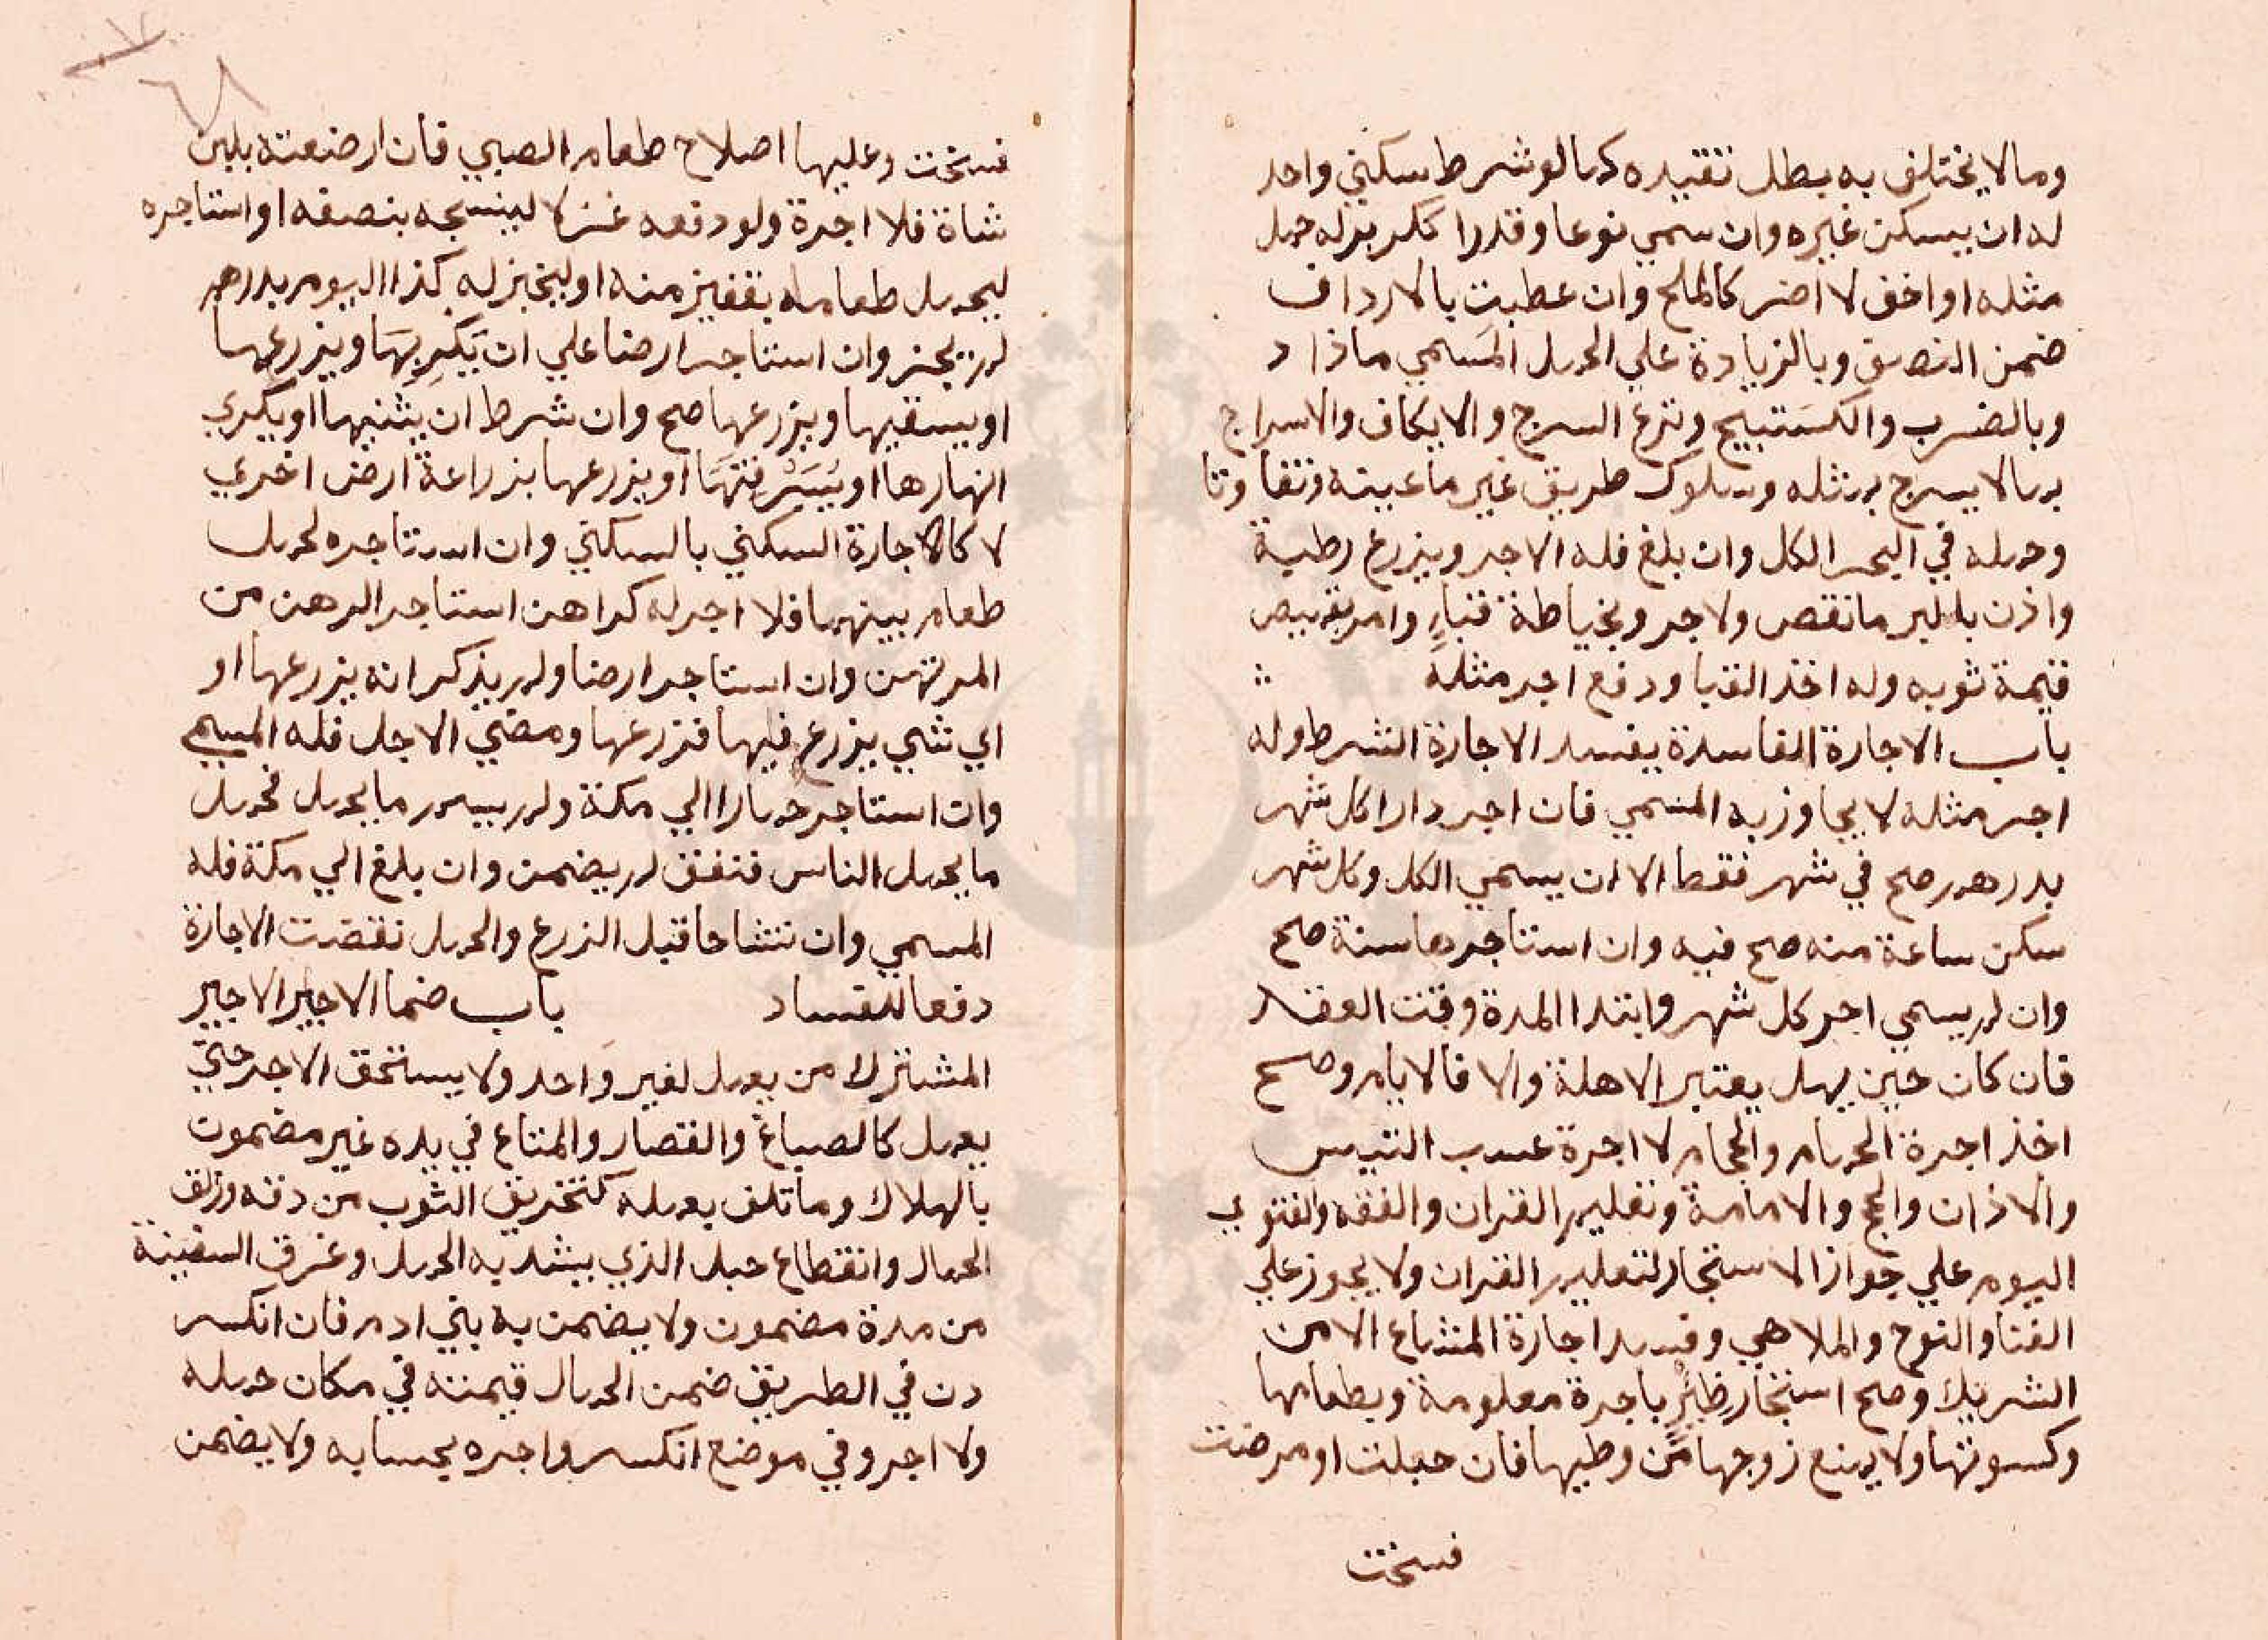 وما لا يختلف به بطل تقييده كما لو شرط سكني واحد
له ان يسكن غيره وان سمي نوعا وقدرا ككر بر له حمل
مثله او اخف لا اضر كالملح وان عطبت بالارداف
ضمن النصف وبالزيادة علي الحمل المسمي ما زاد
وبالضرب والكستبيح ونزع السرج والايكاف والاسراج
بما لا يسرج بمثله وسلوك طريق غير ما عينه وتفاوتا
وحمله في البحر الكل وان بلغ فله الاجر وبزرع رطبة
واذن بالبر ما نقص ولا جر وبخياطة قباءٍ وامر بقميص
قيمة ثوبه وله اخذ القبا ودفع اجر مثله
باب الاجارة الفاسدة يفسد الاجارة الشرط وله
اجر مثله لا يجاوز به المسمي فان اجر دارا كل شهر
بدرهم صح في شهر فقط الا ان يسمي الكل وكل شهر
سكن ساعة منه صح فيه وان استاجرها سنة صح
وان لم يسمي اجر كل شهر وابتدا المدة وقت العقد
فان كان حين يهل يعتبر الاهلة والا فالايام وصح
اخذ اجرة الحمام والحجام لا اجرة عسب التيس
والاذان والحج والامامة وتعليم القران والفقه والفتوي
اليوم علي جواز الاستجار لتعليم القران ولا يجوز علي
الغنا والنوح والملاهي وفسد اجارة المشاع الا من
الشريك وصح استجار ظئرٍ باجرة معلومة وبطعامها
وكسوتها ولا يمنع زوجها من وطيها فان حبلت او مرضت
فسخت
فسخت وعليها اصلاح طعام الصبي فان ارضعته بلبن
شاة فلا اجرة ولو دفعه غزلا لينسجه بنصفه او استاجره
ليحمل طعامه بقفيز منه او ليخبز له كذا اليوم بدرهم
لم يجز وان استاجر ارضا علي ان يَكْرِيهَا ويزرعها
او يسقيها ويزرعها صح وان شرط ان يثنيها او يكري
انهارها او يُسَرْقِنَهَا او يزرعها بزراعة ارض اخري
لا كالاجارة السكني بالسكني وان استاجره لحمل
طعام بينهما فلا اجر له كراهن استاجر الرهن من
المرتهن وان استاجر ارضا ولم يذكر انه يزرعها او
اي شي يزرع فيها فزرعها ومضي الاجل فله المسمي
وان استاجر حمارا الي مكة ولم يسم ما يحمل فحمل
ما يحمل الناس فنفق لم يضمن وان بلغ الي مكة فله
المسمي وان تشاحا قبل الزرع والحمل نقضت الاجارة
دفعا للفساد باب ضما الاجير الاجير
المشترك من يعمل لغير واحد ولا يستحق الاجر حتي
يعمل كالصباغ والقصار والمتاع في يده غير مضمون
بالهلاك وما تلف بعمله كتخريق الثوب من دقه وزلق
الحمال وانقطاع حبل الذي يشد به الحمل وغرق السفينة
من مدة مضمون ولا يضمن به بني ادم فان انكسر
دن في الطريق ضمن الحمال قيمته في مكان حمله
ولا اجر وفي موضع انكسر واجره بحسابه ولا يضمن